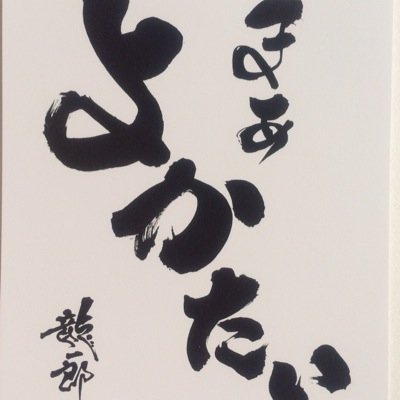 まあ
よかたい
龍一郎